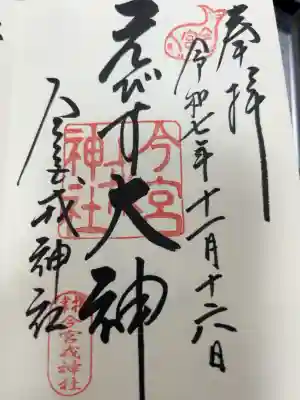 奉拝
令和七年十一月十六日
えびす大神
今宮戎神社
宮
今宮
神社
今宮戎神社